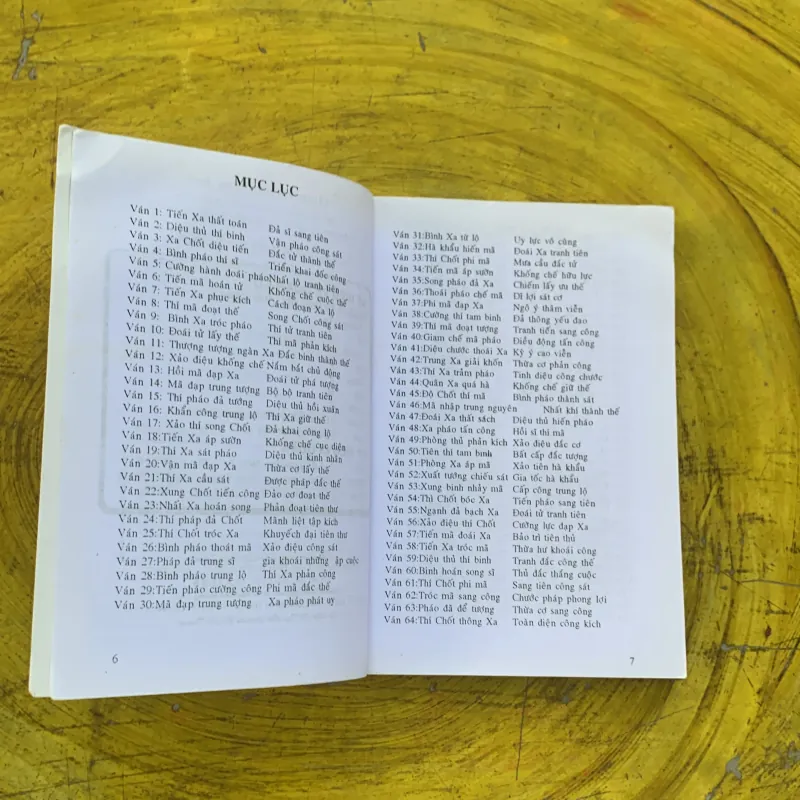 MỤC LỤC
Ván 1: Tiến Xa thất toán Đả sĩ sang tiên
Ván 2: Diệu thủ thí binh Vận pháo công sát
Ván 3: Xa Chốt diệu tiến Đắc tử thành thế
Ván 4: Bình pháo thí sĩ Triển khai đốc công
Ván 5: Cưỡng hành đoái pháo Nhất lộ tranh tiên
Ván 6: Tiến mã hoán tử Khống chế cuộc thế
Ván 7: Tiến Xa phục kích Cách đoạn Xa lộ
Ván 8: Thí mã đoạt thế Song Chốt công sát
Ván 9: Bình Xa tróc pháo Thí tử tranh tiên
Ván 10: Đoái tử lấy thế Thí mã phản kích
Ván 11: Thượng tượng ngàn Xa Đắc binh thành thế
Ván 12: Xảo điệu khống chế Nắm bắt chủ động
Ván 13: Hồi mã đạp Xa Đoái tử phá tượng
Ván 14: Mã đạp trung tượng Bộ bộ tranh tiên
Ván 15: Thí pháo đả tượng Diệu thủ hồi xuân
Ván 16: Khẩn công trung lộ Thí Xa giữ thế
Ván 17: Xảo thí song Chốt Đả khai công lộ
Ván 18:Tiến Xa áp sườn Khống chế cục diện
Ván 19:Thí Xa sát pháo Diệu thủ kinh nhân
Ván 20:Vận mã đạp Xa Thừa cơ lấy thế
Ván 21:Thí Xa cầu sát Được pháo đắc thế
Ván 22:Xung Chốt tiến công Đảo cơ đoạt thế
Ván 23:Nhất Xa hoán song Phản đoạt tiên thư
Ván 24:Thí pháo đả Chốt Mãnh liệt tập kích
Ván 25:Thí Chốt tróc Xa Khuyếch đại tiên thư
Ván 26:Bình pháo thoát mã Xảo điệu công sát
Ván 27:Pháp đả trung sĩ gia khoái những áp cuộc
Ván 28:Bình pháo trung lộ Thí Xa phản công
Ván 29:Tiến pháo cường công Phi mã đắc thế
Ván 30:Mã đạp trung tượng Xa pháo phát uy
6
Ván 31:Bình Xa tứ lộ Uy lực vô cùng
Ván 32:Hà khẩu hiến mã Đoái Xa tranh tiên
Ván 33:Thí Chốt phi mã Mưa cầu đắc tử
Ván 34:Tiến mã áp sườn Khống chế hữu lực
Ván 35:Song pháo đả Xa Chiếm lấy ưu thế
Ván 36:Thoái pháo chế mã Dĩ lợi sát cơ
Ván 37:Phi mã đạp Xa Ngộ ý thâm viễn
Ván 38:Cường thí tam binh Đả thông yếu đạo
Ván 39:Thí mã đoạt tượng Tranh tiến sang công
Ván 40:Giam chế mã pháo Điều động tấn công
Ván 41:Diệu chước thoái Xa Kỳ ý cao viễn
Ván 42:Trung Xa giải khốn Thừa cơ phản công
Ván 43:Thí Xa trảm pháo Tinh điệu công chước
Ván 44:Quân Xa quá hà Khống chế giữ thế
Ván 45:Độ Chốt thí mã Bình pháo thành sát
Ván 46:Mã nhập trung nguyên Nhất khí thành thế
Ván 47:Đoái Xa thất sách Diệu thủ hiến pháo
Ván 48:Xa pháo tấn công Hồi sĩ thí mã
Ván 49:Phòng thủ phản kích Xảo điệu đắc cơ
Ván 50:Tiên thí tam binh Bất cấp đắc tượng
Ván 51:Phòng Xa áp mã Xảo tiên hà khẩu
Ván 52:Xuất tướng chiếu sát Gia tốc hà khẩu
Ván 53:Xung binh nhảy mã Cấp công trung lộ
Ván 54:Thí Chốt bóc Xa Tiến pháo sang tiên
Ván 55:Ngạnh đả bạch Xa Đoái tử tranh tiên
Ván 56:Xảo điệu thí Chốt Cường lực đạp Xa
Ván 57:Tiến mã đoái Xa Bảo trì tiên thủ
Ván 58:Tiến Xa tróc mã Thừa hư khoái công
Ván 59:Diệu thủ thí binh Tranh đắc công thế
Ván 60:Bình hoán song sĩ Thủ đắc thắng cuộc
Ván 61:Thí Chốt phi mã Sang tiên công sát
Ván 62:Tróc mã sang công Chước pháp phong lợi
Ván 63:Pháo đã để tượng Thừa cơ sang công
Ván 64:Thí Chốt thông Xa Toàn diện công kích
7